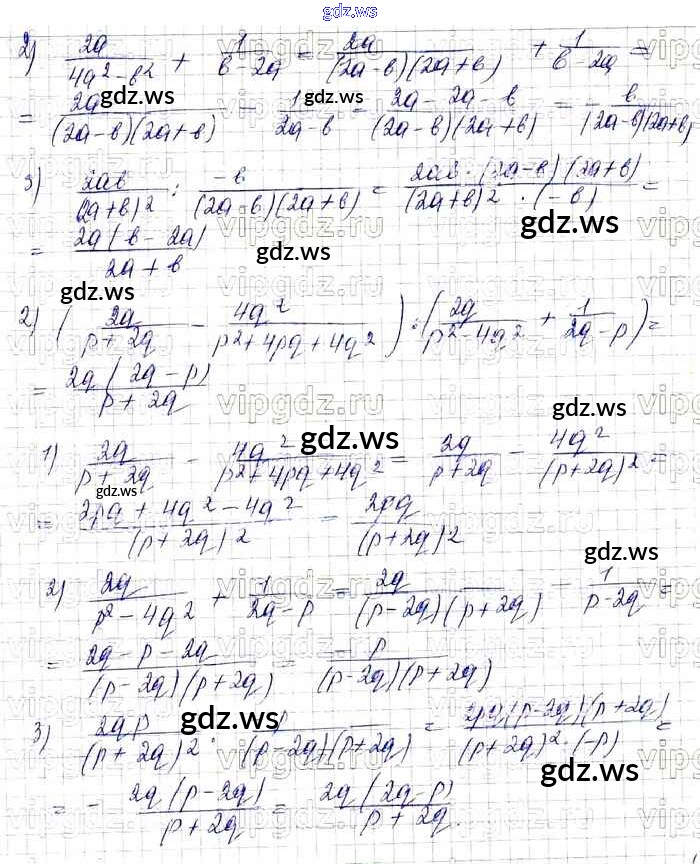 gdz.ws
2) 2a/(4a² - b²) + 1/(b - 2a) = 2a/((2a - b)(2a + b)) + 1/(b - 2a) =
= 2a/((2a - b)(2a + b)) - 1/(2a - b) = (2a - 2a - b)/((2a - b)(2a + b)) = - b/((2a - b)(2a + b))
3) 2ab/(2a + b)² : -b/((2a - b)(2a + b)) = (2ab · (2a - b)(2a + b))/((2a + b)² · (-b)) =
= 2a(b - 2a)/(2a + b)
2) (2q/(p + 2q) - 4q²/(p² + 4pq + 4q²)) : (2q/(p² - 4q²) + 1/(2q - p)) =
= 2q(2q - p)/(p + 2q)
1) 2q/(p + 2q) - 4q²/(p² + 4pq + 4q²) = 2q/(p + 2q) - 4q²/(p + 2q)² =
= (2pq + 4q² - 4q²)/(p + 2q)² = 2pq/(p + 2q)²
2) 2q/(p² - 4q²) + 1/(2q - p) = 2q/((p - 2q)(p + 2q)) - 1/(p - 2q) =
= (2q - p - 2q)/((p - 2q)(p + 2q)) = -p/((p - 2q)(p + 2q))
3) 2qp/(p + 2q)² : -p/((p - 2q)(p + 2q)) = (p - 2q)(p + 2q)/((p + 2q)² · (-p)) =
= - 2q(p - 2q)/(p + 2q) = 2q(2q - p)/(p + 2q)